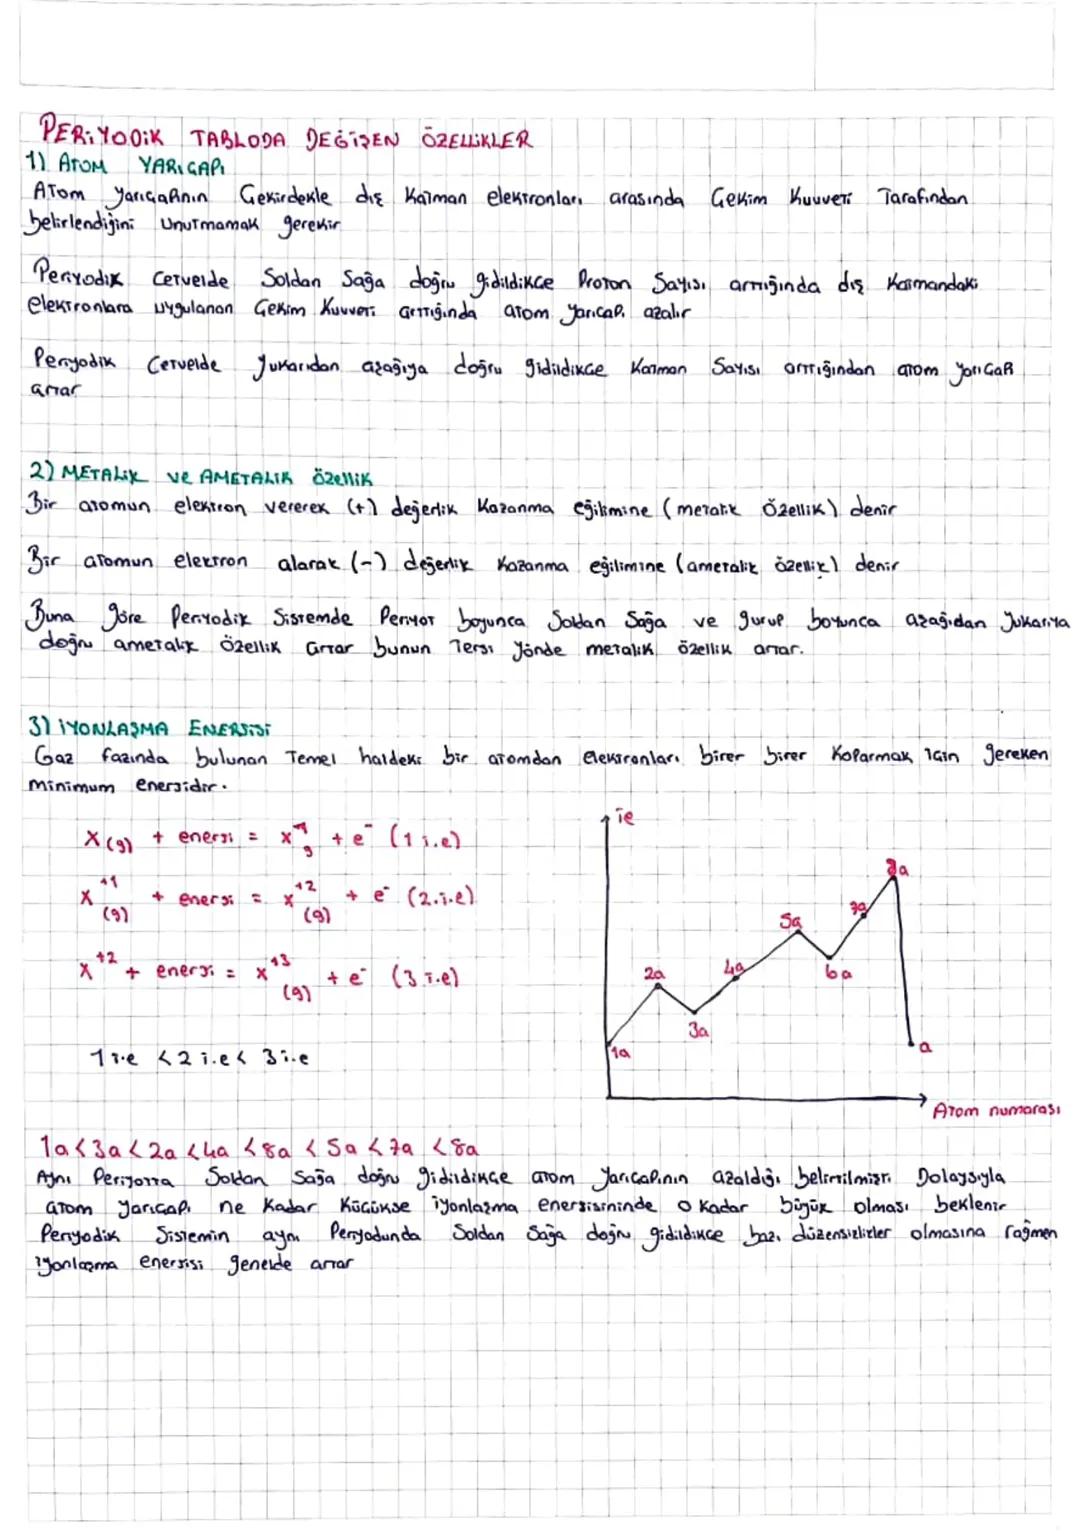 PERİYODİK TABLODA DEĞİŞEN ÖZELLİKLER
1) ATOM YARIÇAPI
Atom yarıçapının Çekirdekle dış Katman elektronları arasında Çekim Kuvveti Tarafından
belirlendiğini unutmamak gerekir
Periyodik Cetvelde Soldan Sağa doğru gidildikçe Proton Sayısı arttığında dış Katmandaki
elektronlara uygulanan Çekim Kuvveti arttığında atom yarıçapı azalır
Periyodik Cetvelde yukarıdan aşağıya doğru gidildikçe Katman Sayısı arttığından atom yarıçapı
artar
2) METALİK ve AMETALİK ÖZELLİK
Bir atomun elektron vererek (+) değerlik Kazanma eğilimine (metalik Özellik) denir
Bir atomun elektron alarak (-) değerlik Kazanma eğilimine (ametalik özellik) denir
Buna göre Periyodik Sistemde Periyot boyunca Soldan Sağa ve gurup boyunca aşağıdan Yukarıya
doğru ametalik Özellik artar bunun Tersi yönde metalik özellik artar.
3) İYONLAŞMA ENERJİSİ
Gaz fazında bulunan Temel haldeki bir atomdan elektronları birer birer Koparmak için gereken
minimum enerjidir.
X(g) + enerji = x⁺¹g + e⁻ (1 i.e)
X⁺¹(g) + enerji = x⁺²(g) + e⁻ (2.i.e)
X⁺² + enerji = x⁺³(g) + e⁻ (3 i.e)
1 i.e < 2 i.e < 3 i.e
ie
8a
7a
5a
6a
4a
2a
3a
1a
a
Atom numarası
1a < 3a < 2a < 4a < 8a < 5a < 7a < 8a
Aynı Periyotta Soldan Sağa doğru gidildikçe atom Yarıçapının azaldığı belirtilmişti Dolaysıyla
atom yarıçapı ne Kadar Küçükse iyonlaşma enerjisininde o Kadar büyük olması beklenir
Periyodik Sistemin aynı Periyodunda Soldan Sağa doğru gidildikçe bazı düzensizlikler olmasına rağmen
iyonlaşma enerjisi genelde artar